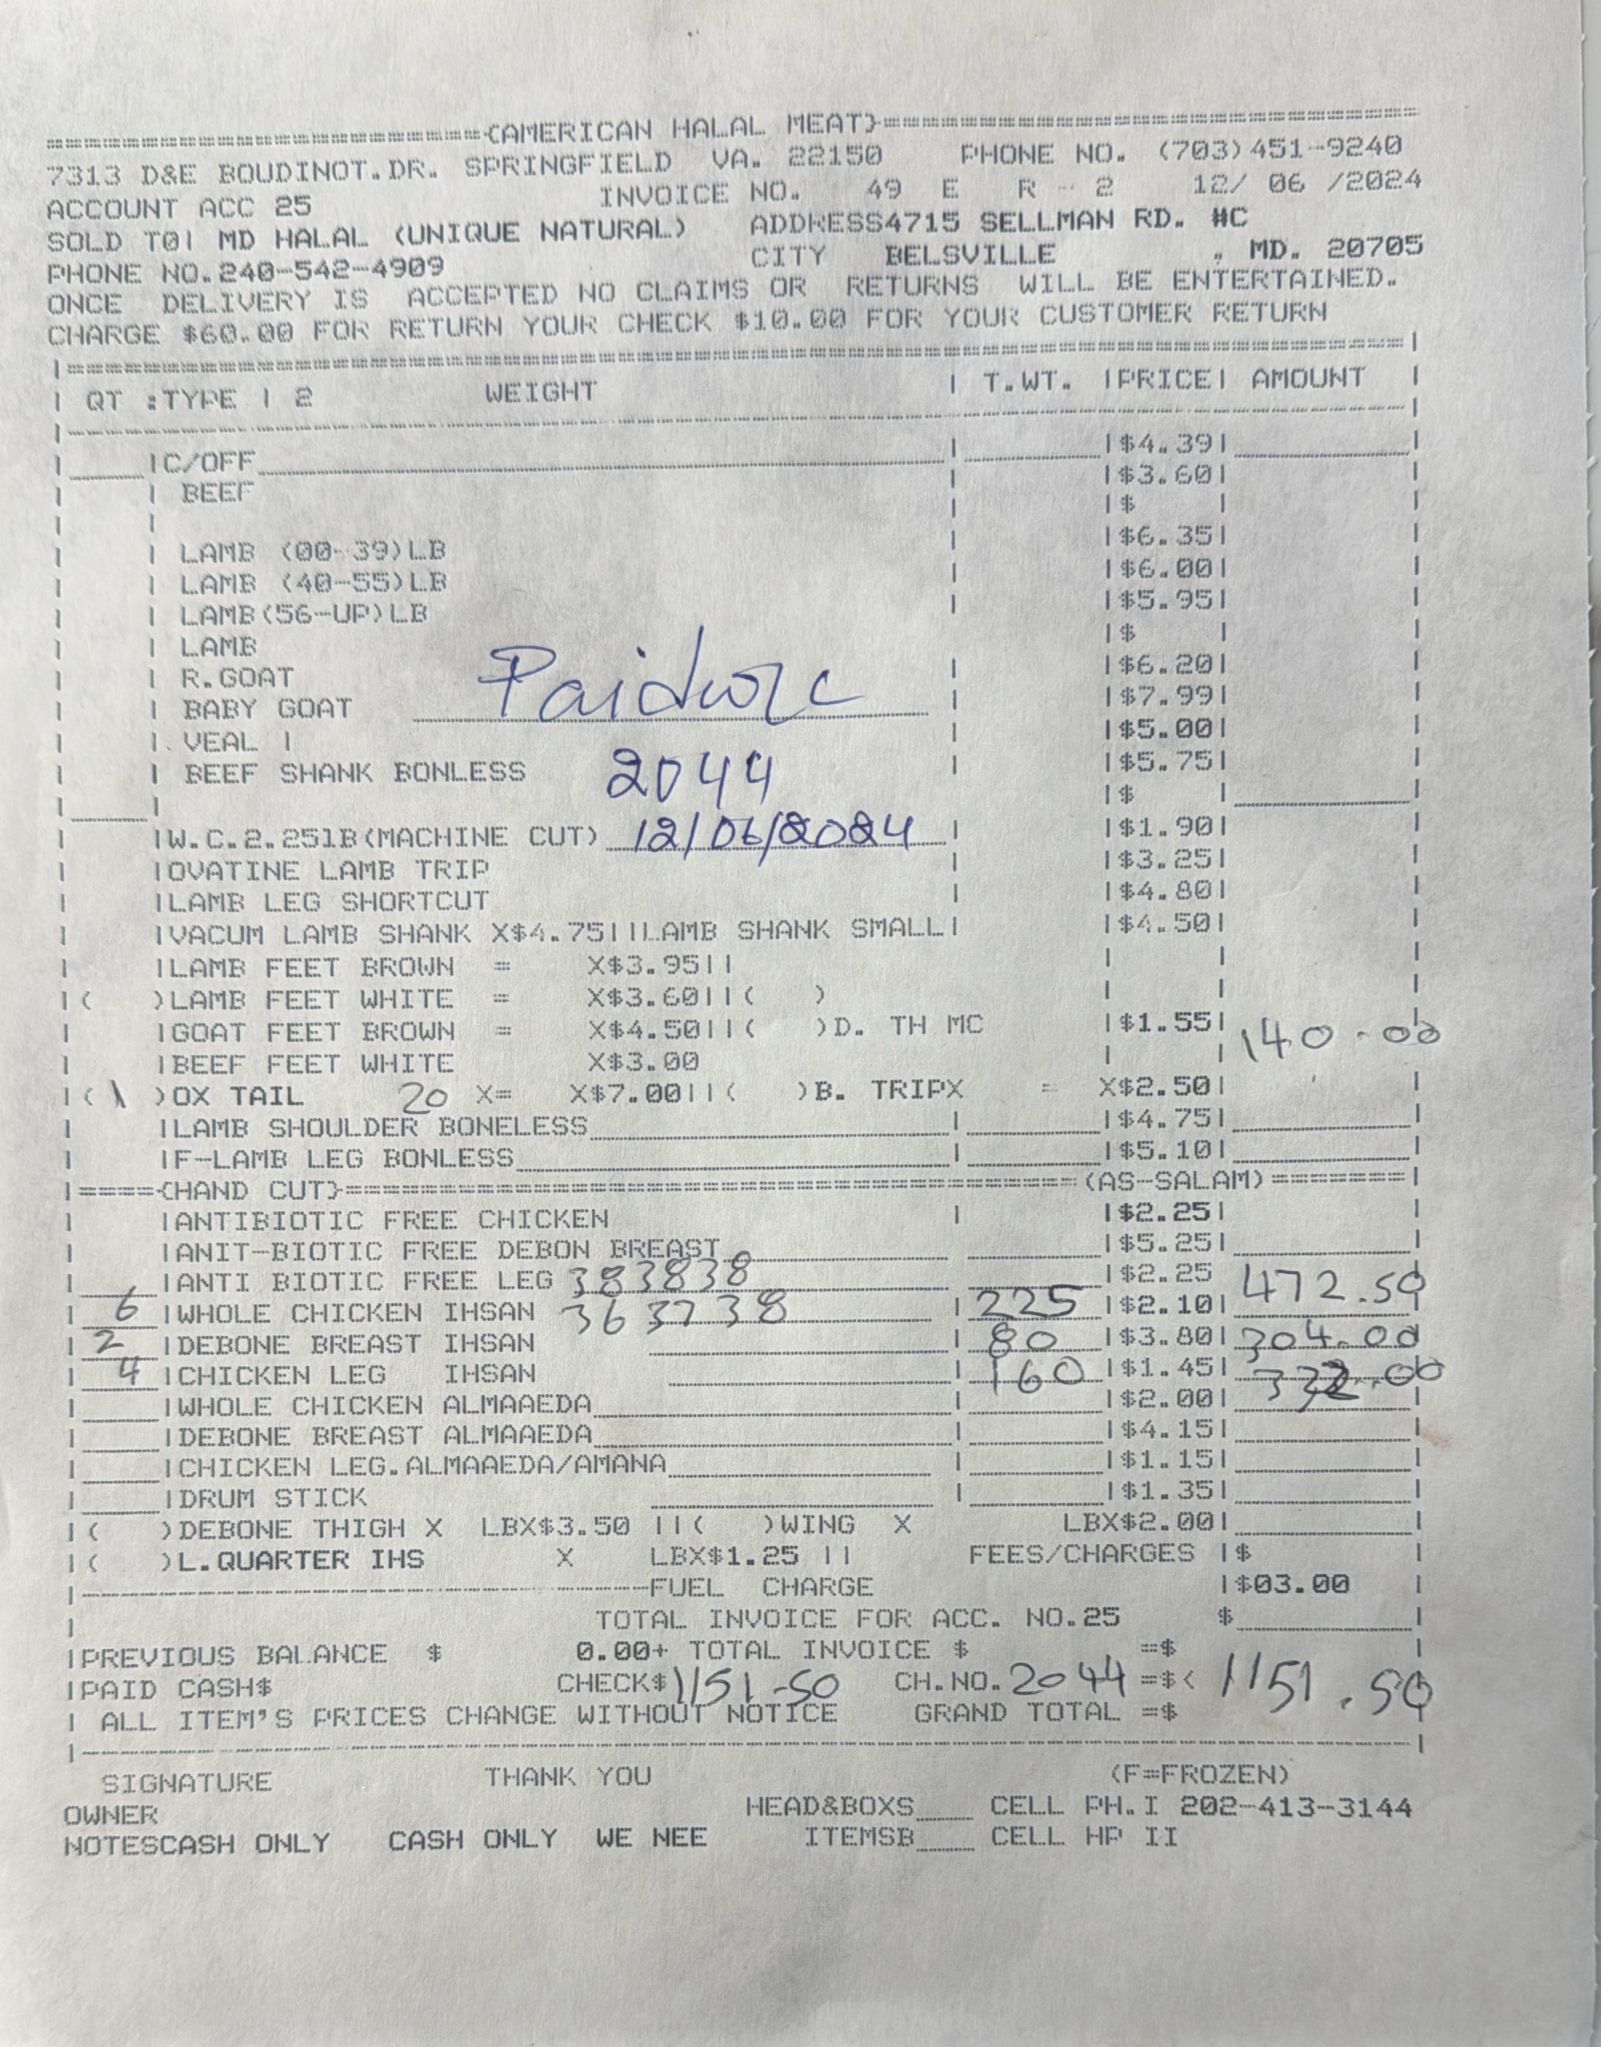 {AMERICAN HALAL MEAT}
7313 D&E BOUDINOT.DR. SPRINGFIELD VA. 22150 PHONE NO. (703)451-9240
ACCOUNT ACC 25 INVOICE NO. 49 E R - 2 12/ 06 /2024
SOLD TO| MD HALAL (UNIQUE NATURAL) ADDRESS4715 SELLMAN RD. #C
PHONE NO.240-542-4909 CITY BELSVILLE , MD. 20705
ONCE DELIVERY IS ACCEPTED NO CLAIMS OR RETURNS WILL BE ENTERTAINED.
CHARGE $60.00 FOR RETURN YOUR CHECK $10.00 FOR YOUR CUSTOMER RETURN
QT :TYPE | 2 WEIGHT | T.WT. |PRICE| AMOUNT |
|C/OFF |$4.39|
| BEEF |$3.60|
|$ |
| LAMB (00-39)LB |$6.35|
| LAMB (40-55)LB |$6.00|
| LAMB(56-UP)LB |$5.95|
| LAMB |$ |
| R.GOAT |$6.20|
| BABY GOAT |$7.99|
| VEAL | |$5.00|
| BEEF SHANK BONLESS 2044 |$5.75|
|$ |
|W.C.2.25lB(MACHINE CUT) 12/06/2024 |$1.90|
|OVATINE LAMB TRIP |$3.25|
|LAMB LEG SHORTCUT |$4.80|
|VACUM LAMB SHANK X$4.75||LAMB SHANK SMALL| |$4.50|
|LAMB FEET BROWN = X$3.95||
|( )LAMB FEET WHITE = X$3.60||( )
|GOAT FEET BROWN = X$4.50||( )D. TH MC |$1.55| 140.00
|BEEF FEET WHITE X$3.00
|( \ )OX TAIL 20 X= X$7.00||( )B. TRIPX = X$2.50|
|LAMB SHOULDER BONELESS |$4.75|
|F-LAMB LEG BONLESS |$5.10|
|===={HAND CUT}====(AS-SALAM)=======|
|ANTIBIOTIC FREE CHICKEN |$2.25|
|ANIT-BIOTIC FREE DEBON BREAST |$5.25|
|ANTI BIOTIC FREE LEG 383838 |$2.25 472.50
6 |WHOLE CHICKEN IHSAN 363738 | 225 |$2.10|
2 |DEBONE BREAST IHSAN 80 |$3.80| 304.00
4 |CHICKEN LEG IHSAN 160 |$1.45|
|WHOLE CHICKEN ALMAAEDA |$2.00|
|DEBONE BREAST ALMAAEDA |$4.15|
|CHICKEN LEG.ALMAAEDA/AMANA |$1.15|
|DRUM STICK |$1.35|
|( )DEBONE THIGH X LBX$3.50 ||( )WING X LBX$2.00|
|( )L.QUARTER IHS X LBX$1.25 || FEES/CHARGES |$
FUEL CHARGE |$03.00
TOTAL INVOICE FOR ACC. NO.25 $
|PREVIOUS BALANCE $ 0.00+ TOTAL INVOICE $ =$
|PAID CASH$ CHECK$1151.50 CH.NO.2044 =$< 1151.50
| ALL ITEM'S PRICES CHANGE WITHOUT NOTICE GRAND TOTAL =$
SIGNATURE THANK YOU (F=FROZEN)
OWNER HEAD&BOXS CELL PH.I 202-413-3144
NOTESCASH ONLY CASH ONLY WE NEE ITEMSB CELL HP II